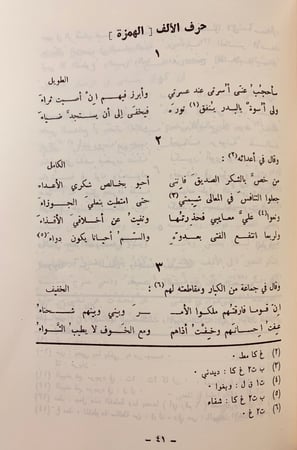 حرف الألف [ الهمزة ]
١
الطويل
سأحجب عني أسرتي عند عسرتي وأبرز فيهم إن أصبت ثراء
ولي أسوة بالبدر ينفق(١) نوره فيخفى إلى أن يستجد ضياء
٢
وقال في أعدائه(٢) :
الكامل
من خص بالشكر الصديق فإنني أحبو بخالص شكري الأعداء
جعلوا التنافس في المعالي شيمتي(٣) حتى امتطيت بنعلي الجوزاء
ونعوا(٤) علي معايبي فحذرتها ونفيت عن أخلاقي الأقذاء
ولربما انتفع الفتى بعدوه والسم أحيانا يكون دواء(٥)
٣
وقال في جماعة من الكبار ومقاطعته لهم(٦) :
الخفيف
إن قوما فارقتهم ملكوا الأمـ ـر وبيني وبينهم شحناء
عفت إحسانهم وخفت أذاهم ومع الخوف لا يطيب الثواء
(٢) غ كا معل ٠
(٣) ب ت٢ غ كا : ديدني ٠
(٤) ت١ ق ل : وبغوا ٠
(٥) ب ت٢ غ كا : شفاء
(٦) ب ت٢ غ ٠
- ٤١ -